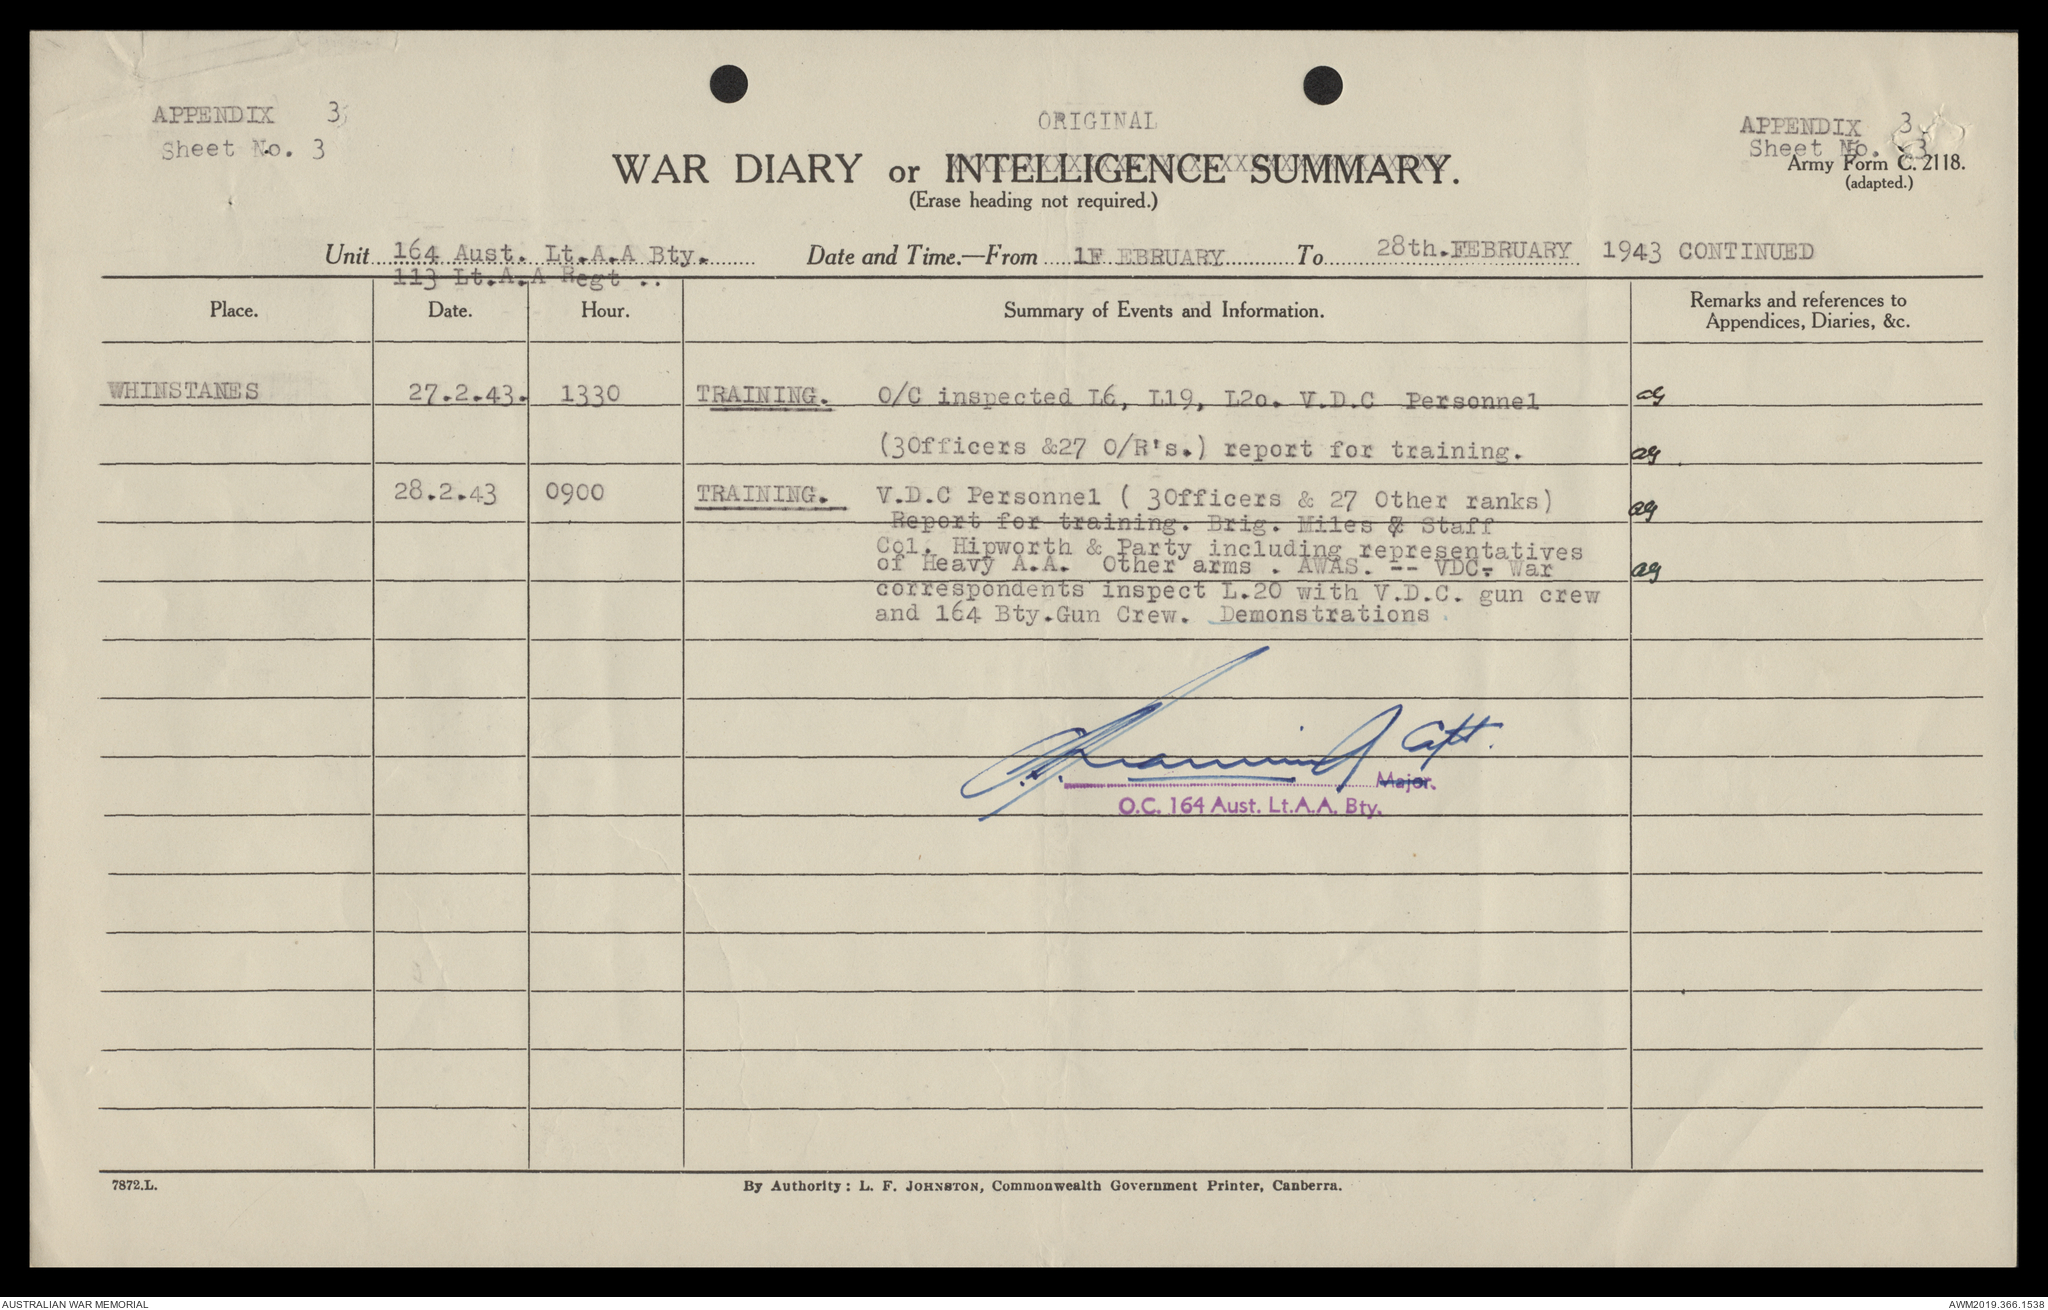 APPENDIX 3
Sheet No. 3
ORIGINAL
APPENDIX 3.
Sheet No. 3
Army Form C. 2118.
(adapted.)
WAR DIARY or INTELLIGENCE SUMMARY.
(Erase heading not required.)
Unit 164 Aust. Lt.A.A Bty. Date and Time.—From 1F EBRUARY To 28th.FEBRUARY 1943 CONTINUED
113 Lt.A.A Regt ..
Place. Date. Hour. Summary of Events and Information. Remarks and references to
Appendices, Diaries, &c.
WHINSTANES 27.2.43. 1330 TRAINING. O/C inspected L6, L19, L2o. V.D.C Personnel
(3Officers &27 O/R's.) report for training.
28.2.43 0900 TRAINING. V.D.C Personnel ( 3Officers & 27 Other ranks)
Report for training. Brig. Miles & Staff
Col. Hipworth & Party including representatives
of Heavy A.A. Other arms . AWAS. -- VDC- War
correspondents inspect L.20 with V.D.C. gun crew
and 164 Bty.Gun Crew. Demonstrations
Capt.
Major.
O.C. 164 Aust. Lt.A.A. Bty.
7872.L. By Authority: L. F. JOHNSTON, Commonwealth Government Printer, Canberra.
AUSTRALIAN WAR MEMORIAL AWM2019.366.1538